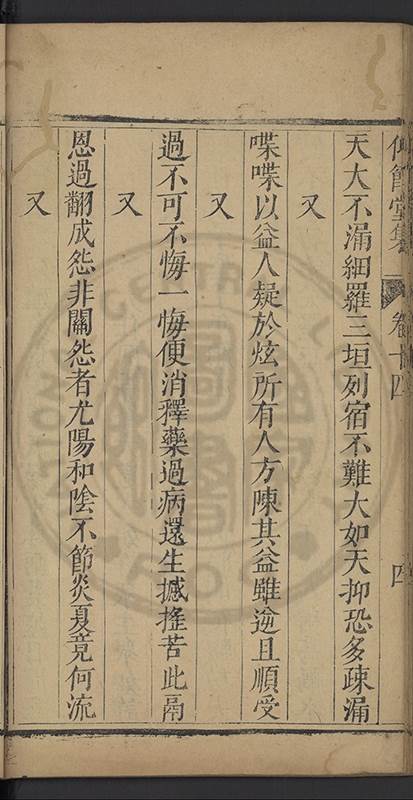 仰節堂集 卷十四 四
天大不漏細羅三垣列宿不難大如天抑恐多疎漏
又
喋喋以益人疑於炫所有人方陳其益雖逆且順受
又
過不可不悔一悔便消釋藥過病還生撼搖苦此鬲
又
恩過翻成怨非關怨者尤陽和陰不節炎夏竟何流
又